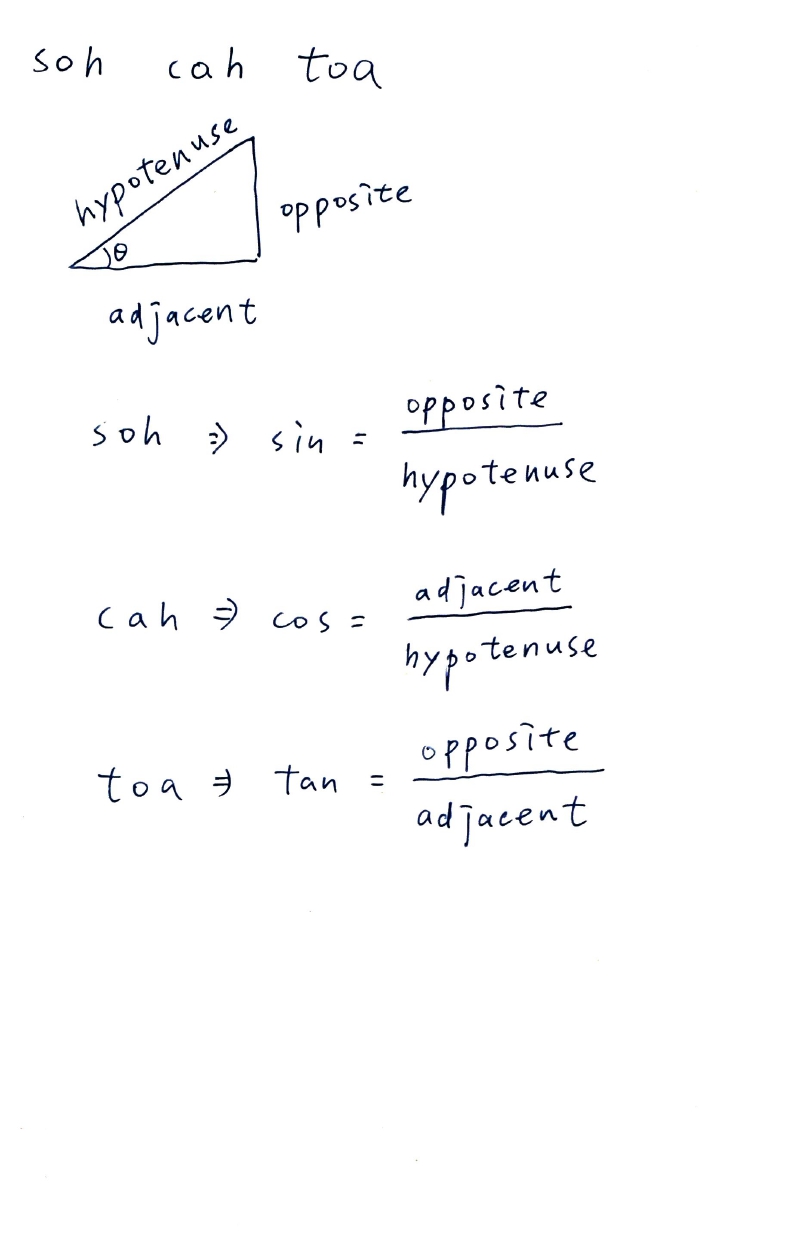 soh cah toa
hypotenuse
opposite
θ
adjacent
soh ⇒ sin = opposite / hypotenuse
cah ⇒ cos = adjacent / hypotenuse
toa ⇒ tan = opposite / adjacent